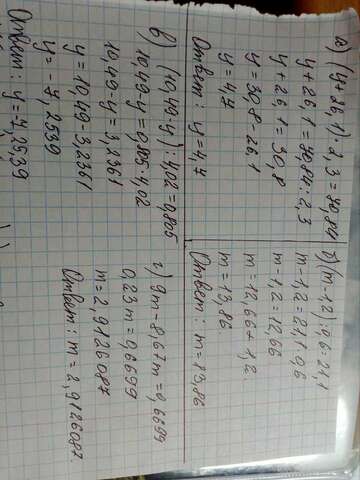 а) (y+26,1)·2,3=70,84
y+26,1=70,84:2,3
y+26,1=30,8
y=30,8-26,1
y=4,7
Ответ: y=4,7
б) (m-1,2):0,6=21,1
m-1,2=21,1·0,6
m-1,2=12,66
m=12,66+1,2
m=13,86
Ответ: m=13,86
в) (10,49-y):4,02=0,805
10,49-y=0,805·4,02
10,49-y=3,2361
y=10,49-3,2361
y=7,2539
Ответ: y=7,2539
г) 9m-8,67m=0,6699
0,23m=0,6699
m=2,9126087
Ответ: m=2,9126087.